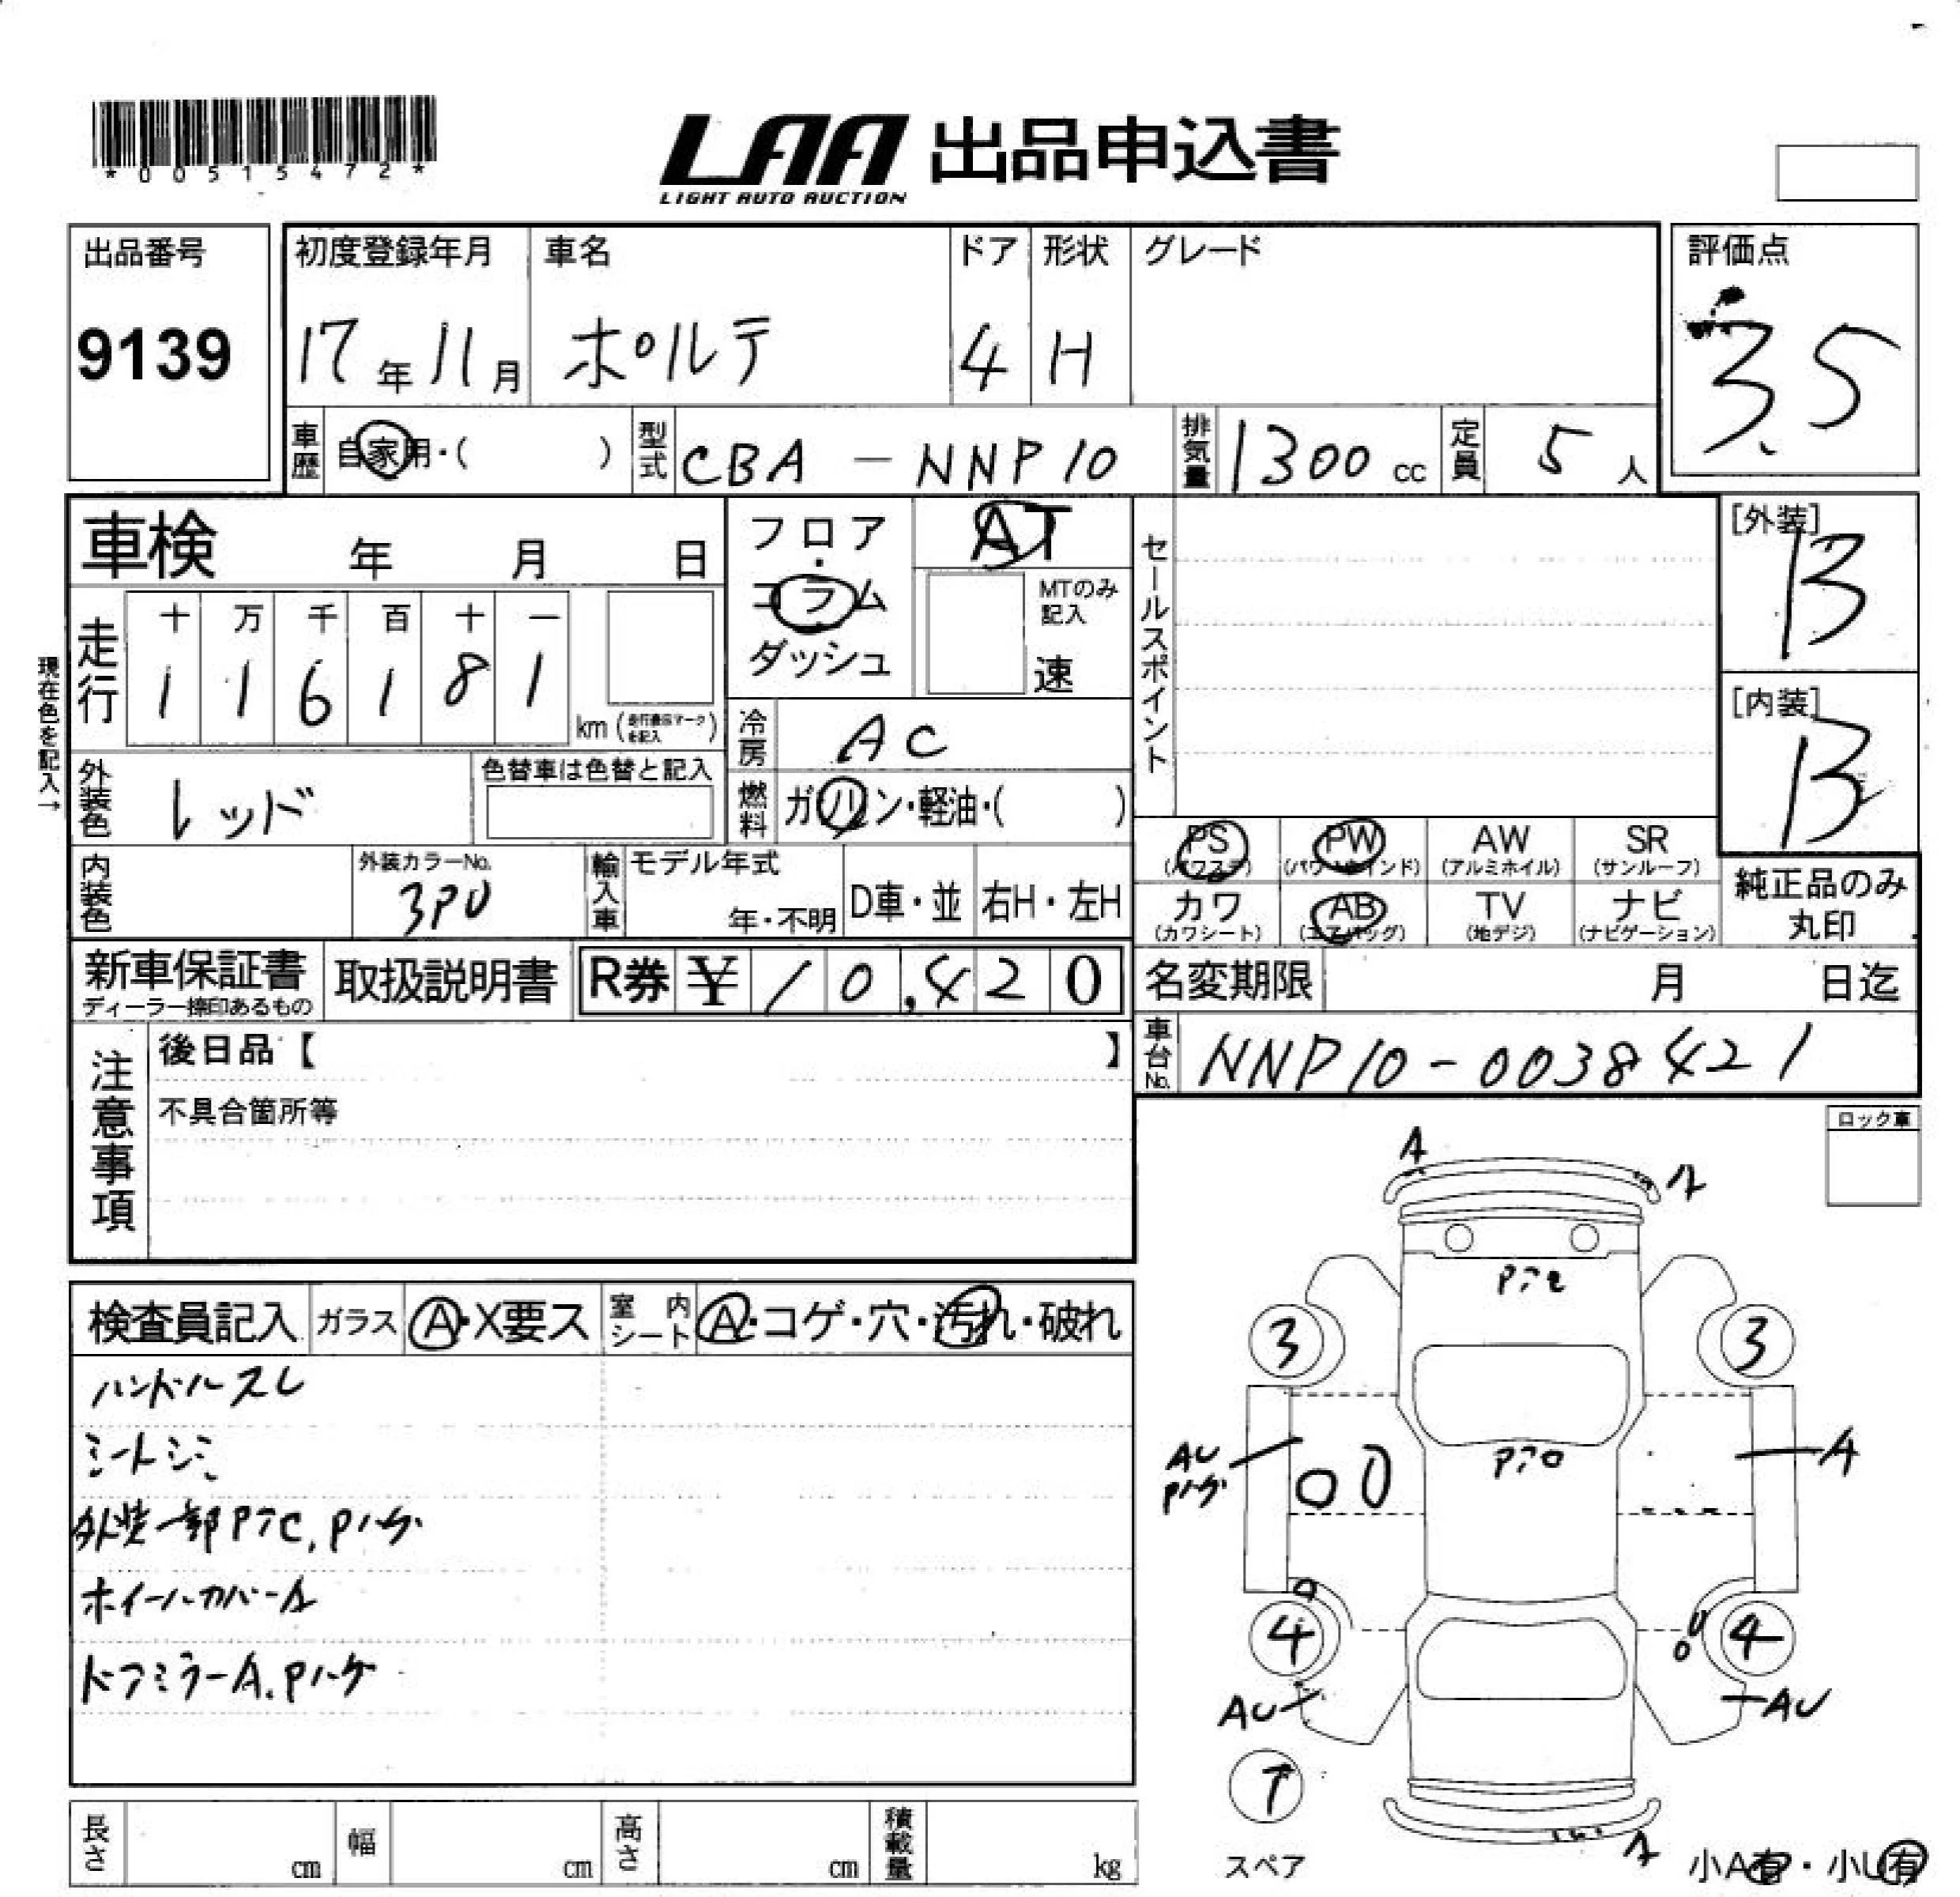 *00515472*
LAA 出品申込書
LIGHT AUTO AUCTION
出品番号 9139
初度登録年月 17年11月
車名 ポルテ
ドア 4
形状 H
グレード
評価点 3.5
車歴 自家用・( )
型式 CBA-NNP10
排気量 1300 cc
定員 5 人
車検 年 月 日
フロア・コラム・ダッシュ
AT
MTのみ記入
速
セールスポイント
[外装] B
[内装] B
現在色を記入→
走行 十 万 千 百 十 一
1 1 6 1 8 1 km (走行表示マークを記入)
冷房 AC
外装色 レッド
色替車は色替と記入
燃料 ガソリン・軽油・( )
内装色
外装カラーNo. 3P0
輸入車 モデル年式 年・不明 D車・並 右H・左H
PS (パワステ) PW (パワーウインド) AW (アルミホイル) SR (サンルーフ)
カワ (カワシート) AB (エアバッグ) TV (地デジ) ナビ (ナビゲーション)
純正品のみ丸印
新車保証書 ディーラー捺印あるもの
取扱説明書
R券 ¥10,420
名変期限 月 日迄
車台No. NNP10-0038421
注意事項
後日品【 】
不具合箇所等
ロック車
検査員記入 ガラス A・X要ス 室内シート A・コゲ・穴・汚れ・破れ
ハンドルスレ
シートシミ
外装一部PテC, Pハゲ
ホイールカバーA
ドアミラーA, Pハゲ
A
3 3
AU
Pハゲ
A
4 4
AU AU
スペア
小A有・小U有
長さ cm 幅 cm 高さ cm 積載量 kg